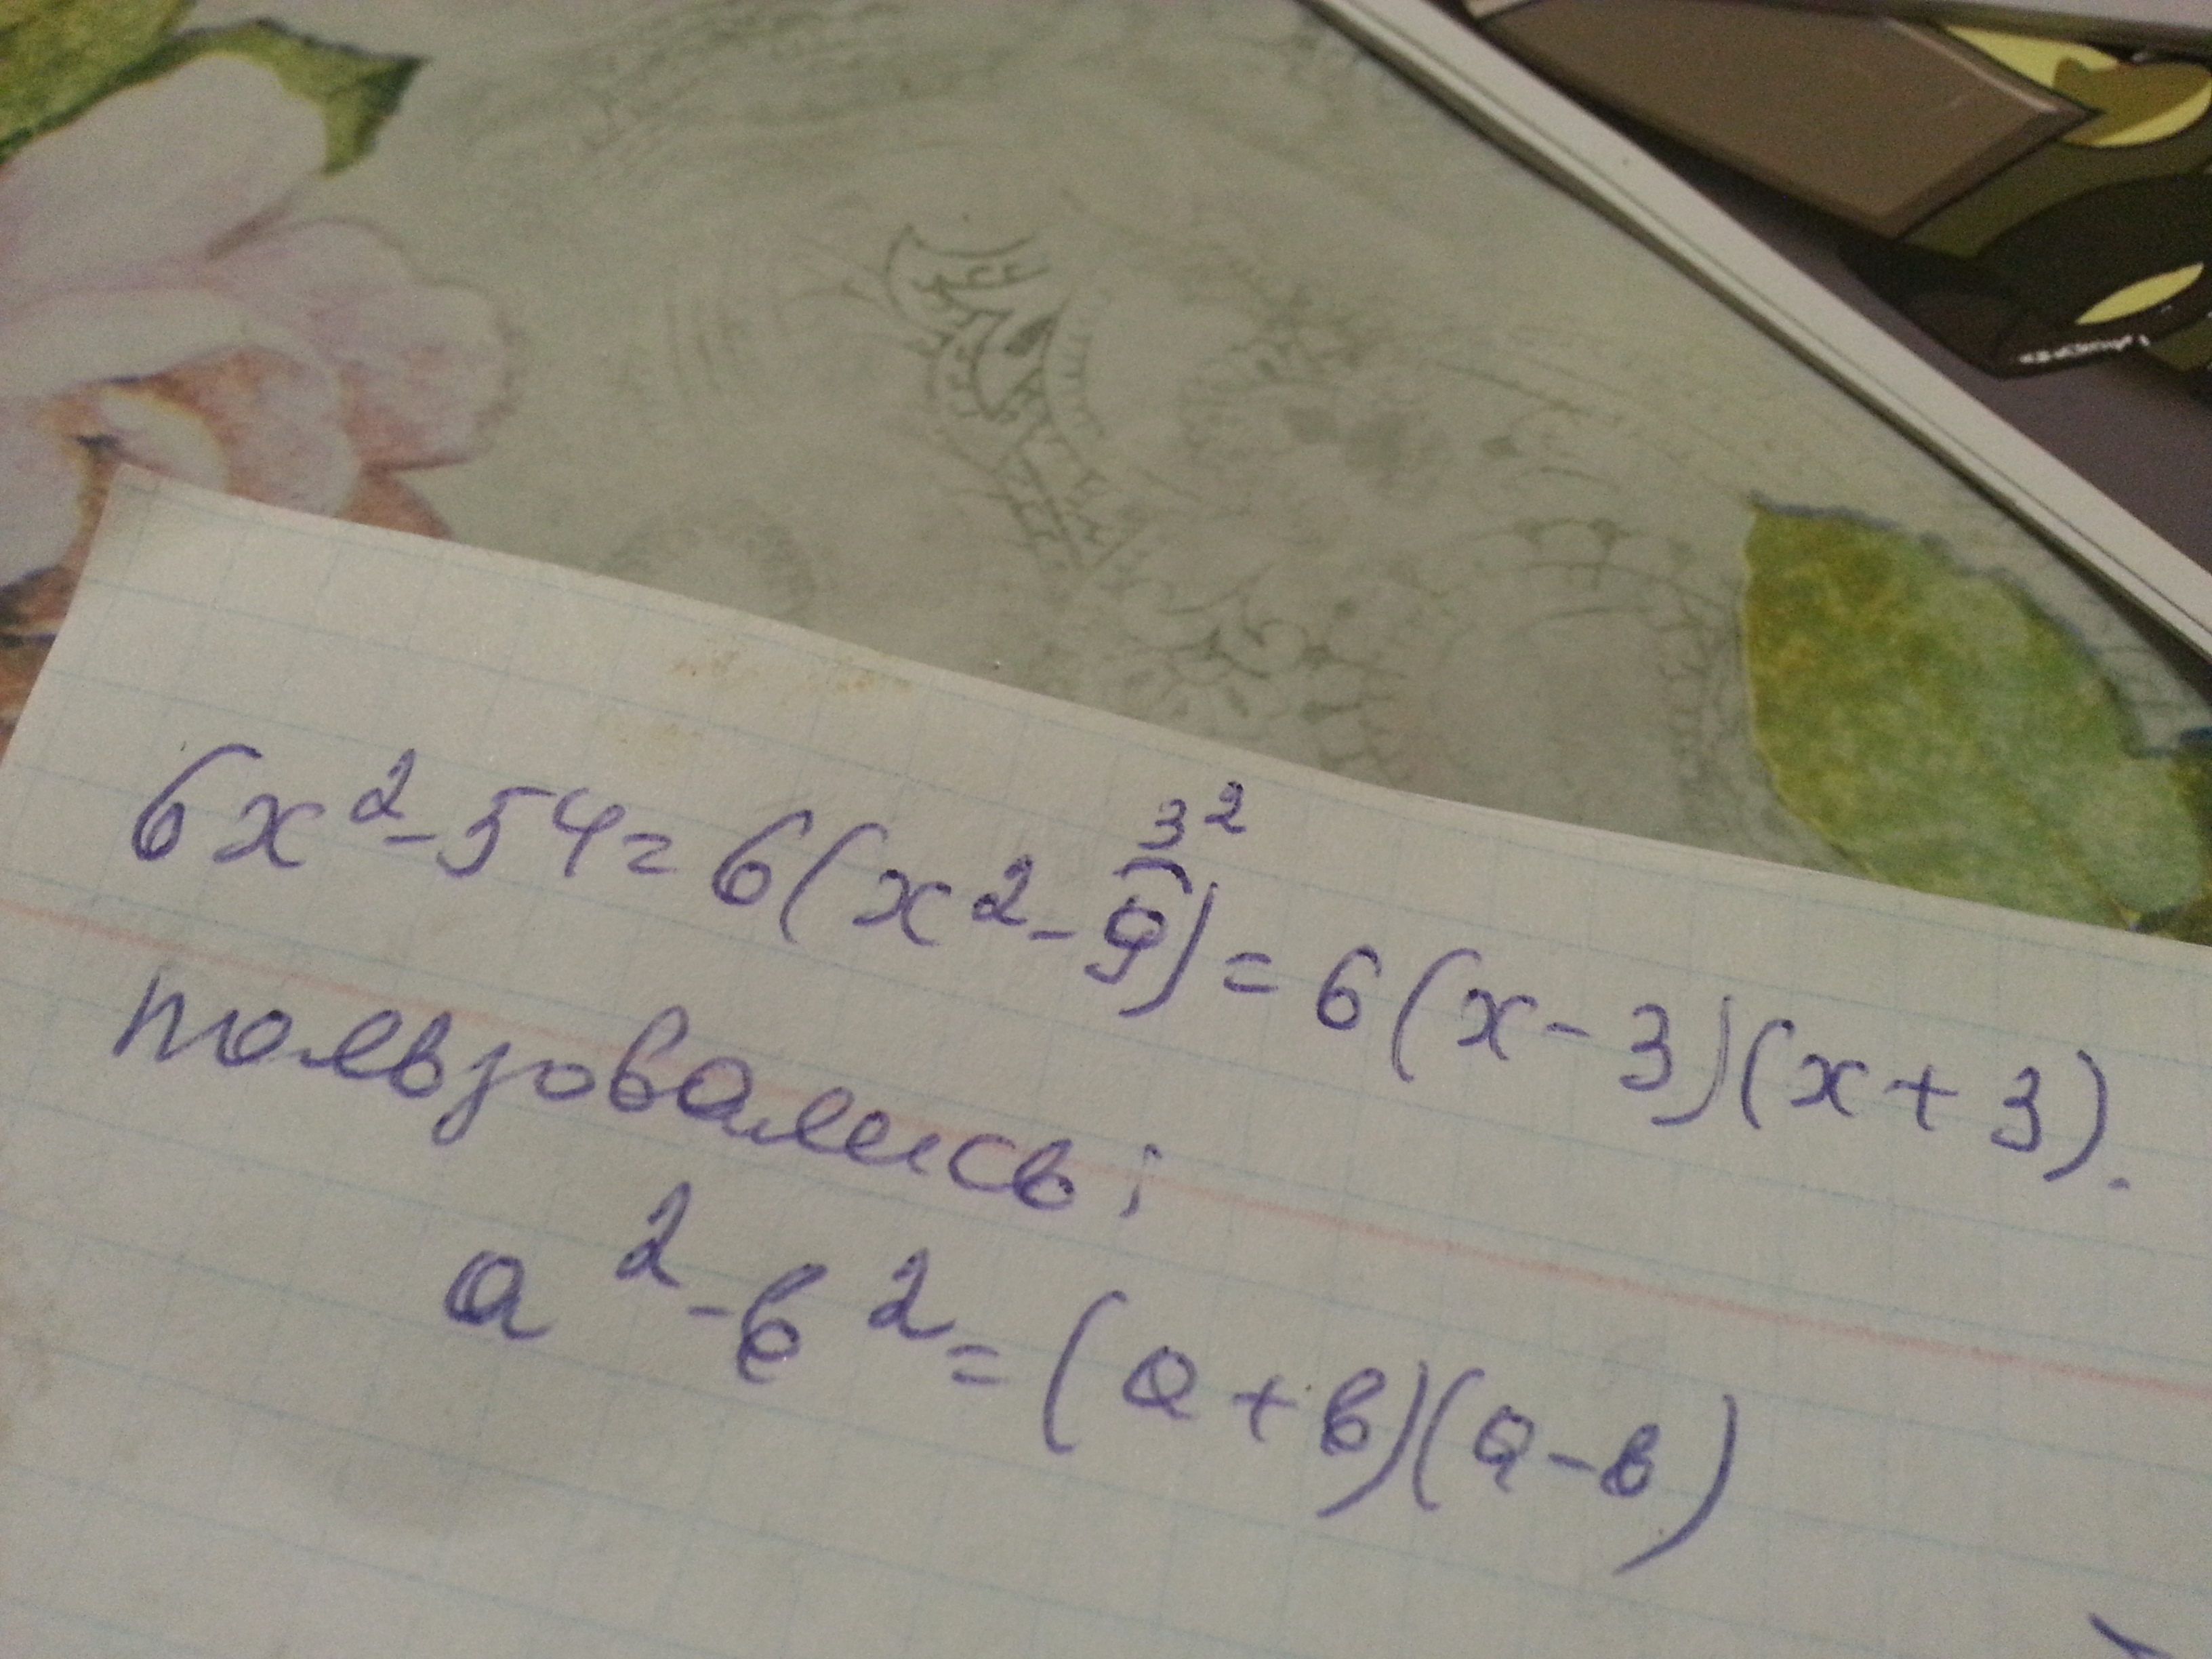 3²
6x²-54=6(x²-9)=6(x-3)(x+3).
пользовались:
a²-b²=(a+b)(a-b)